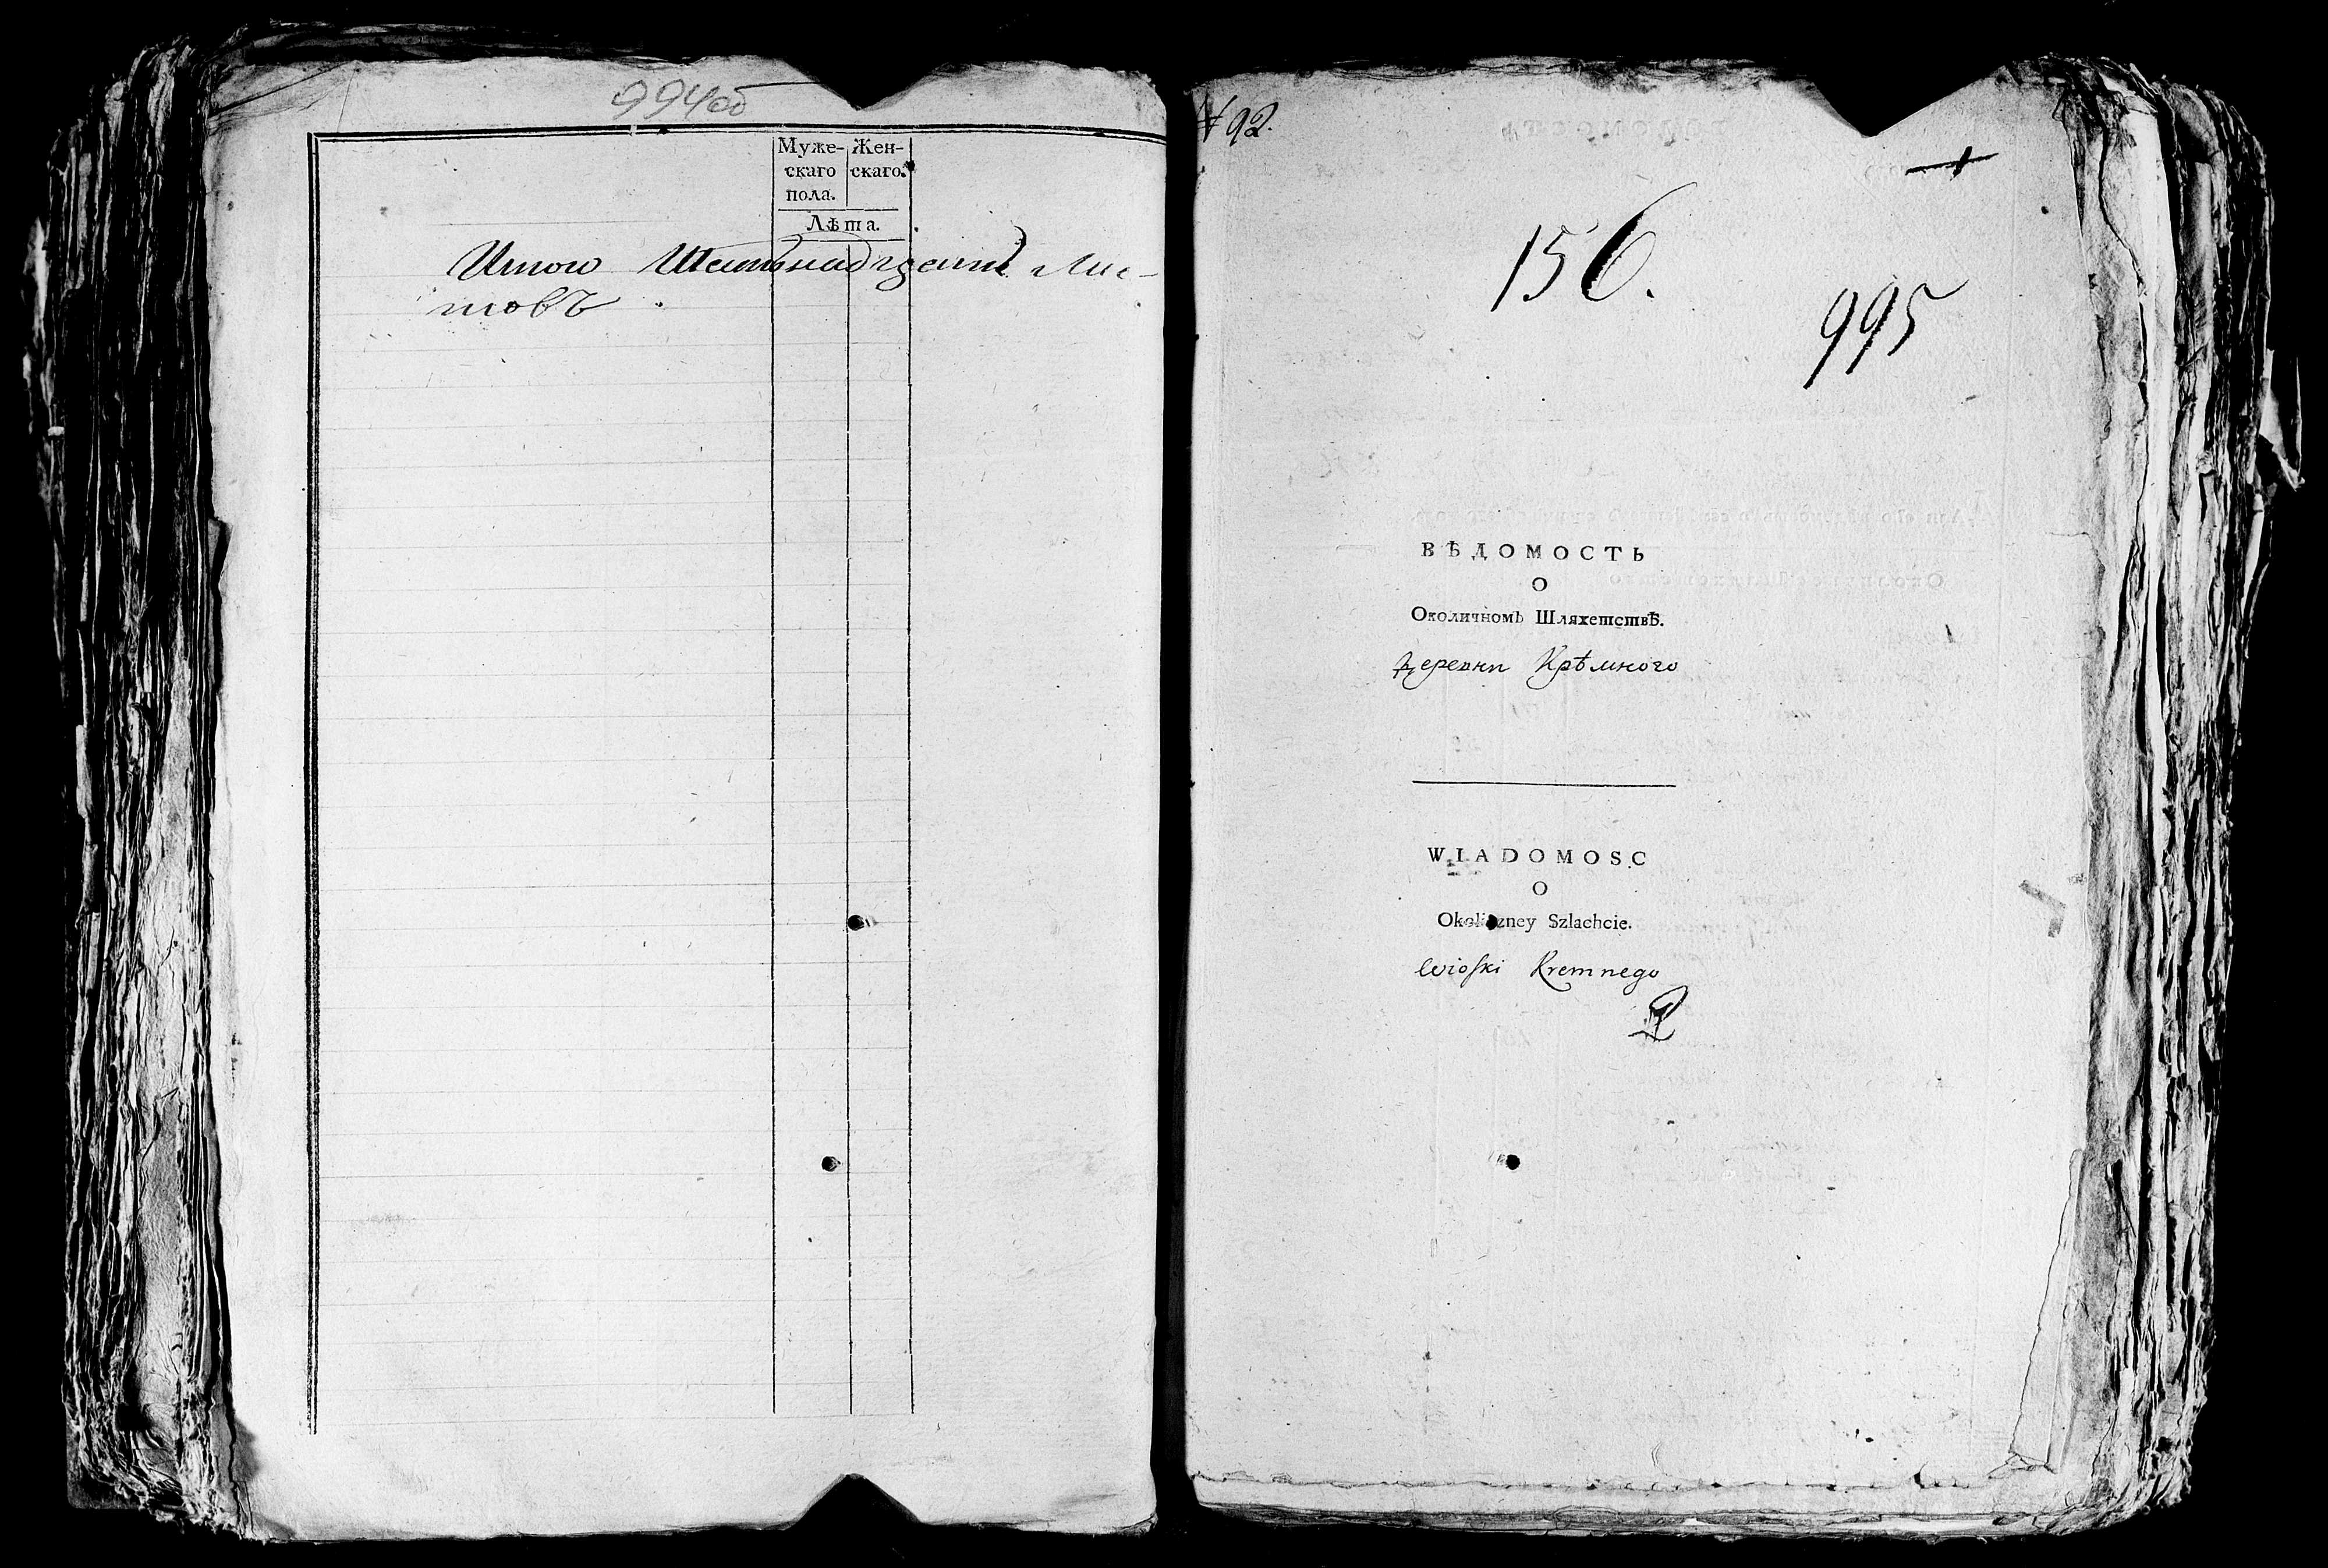 994об
Муже- Жен-
скаго скаго.
пола.
Лѣта.
Итого Шестьнадцеть Лис-
товъ
№ 92.
156.
995
ВѢДОМОСТЬ
О
Околичномъ Шляхетствѣ.
Деревни Крѣмного
WIADOMOSC
O
Okoliczney Szlachcie.
Wioski Kremnego